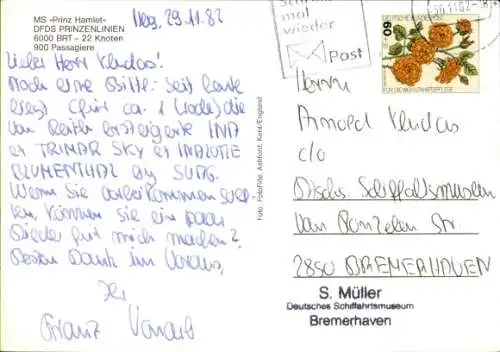 MS »Prinz Hamlet«
DFDS PRINZENLINIEN
6000 BRT - 22 Knoten
900 Passagiere
29.11.82
Lieber Herr Kludas!
Noch eine Bitte: seit heute
liegt (für ca. 1 Woche) die
von
ex TRIMAR SKY ex
BLUMENTHAL by
Wenn Sie vorbeikommen soll-
ten, können Sie ein paar
Bilder für mich machen?
Besten Dank im Voraus,
Ihr
Franz
Foto: FotoFlite, Ashford, Kent/England
mal
wieder
Post
DEUTSCHE BUNDESPOST
FÜR DIE WOHLFAHRTSPFLEGE
Herrn
Arnold Kludas
c/o
Dtsches Schiffahrtsmuseum
Van Ronzelen Str.
2850 BREMERHAVEN
S. Müller
Deutsches Schiffahrtsmuseum
Bremerhaven